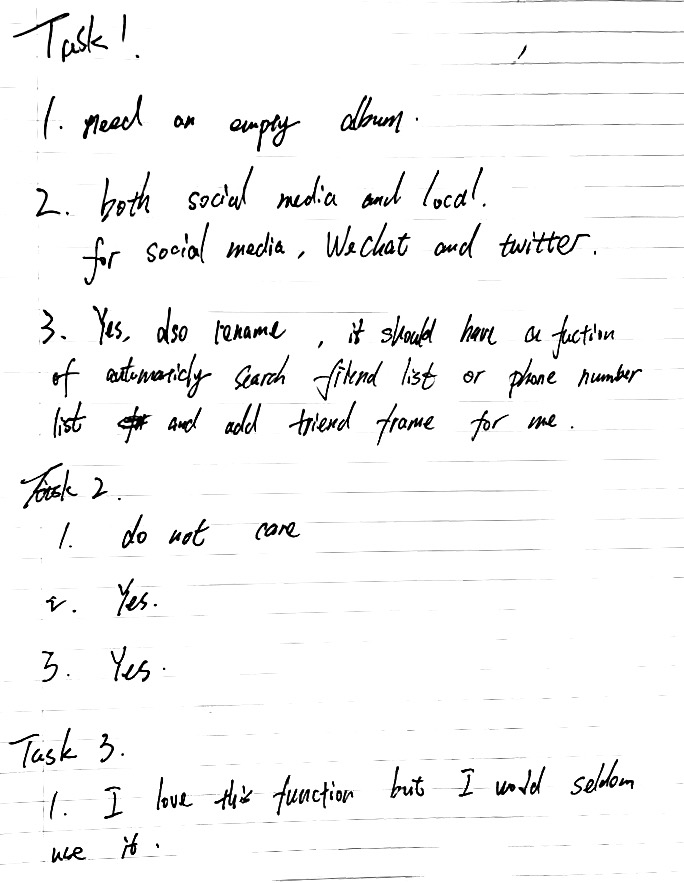 Task 1.
1. Need an empty album.
2. both social media and local.
for social media, WeChat and twitter.
3. Yes, also rename, it should have a fuction
of automaticly search friend list or phone number
list and add friend frame for me.
Task 2.
1. do not care
2. Yes.
3. Yes.
Task 3.
1. I love this function but I would seldom
use it.